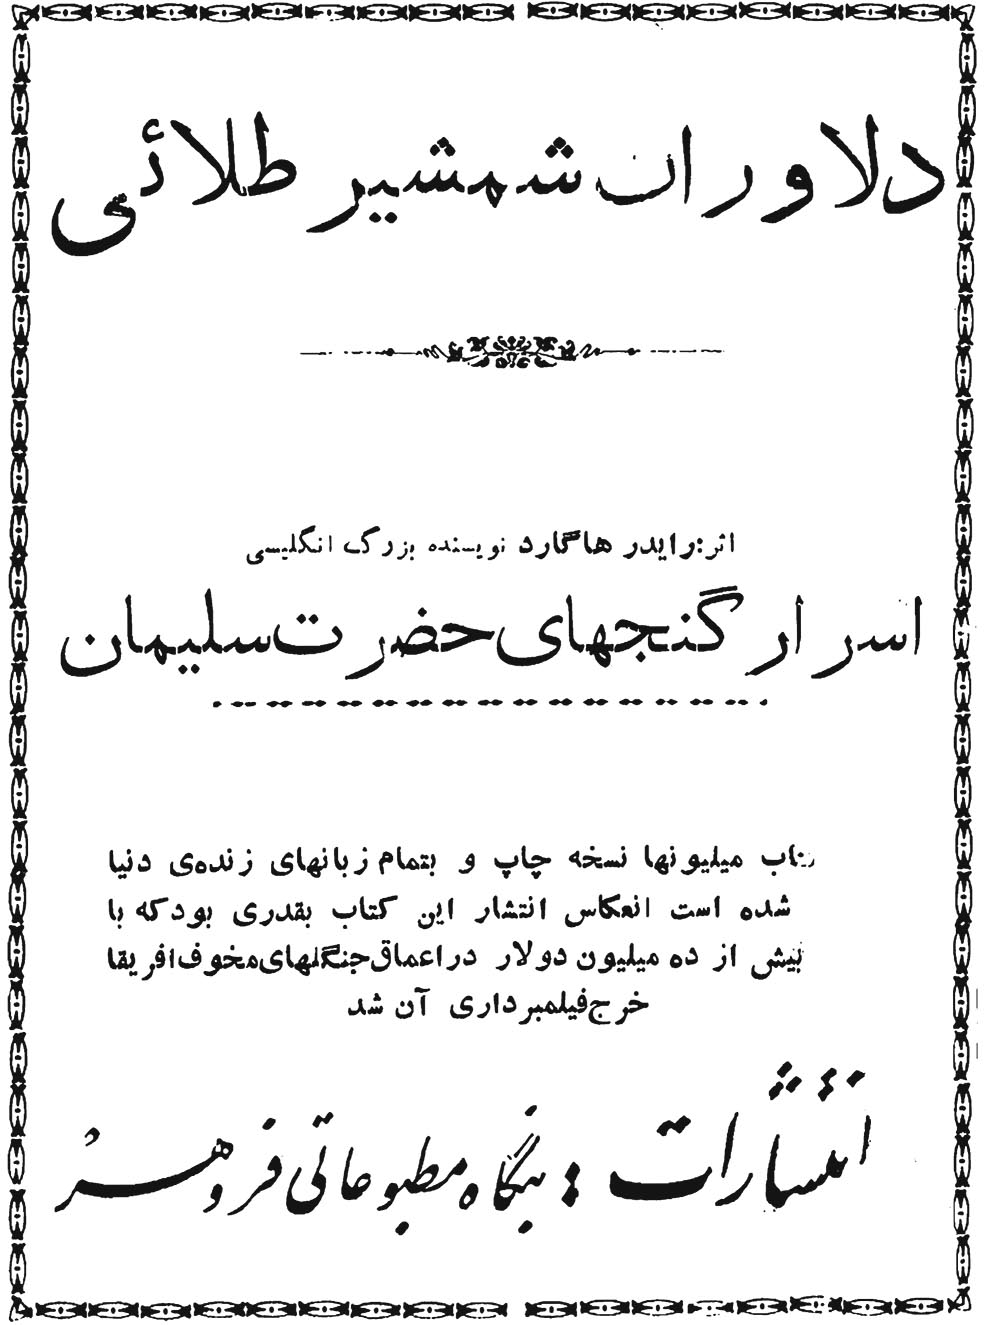 دلاوران شمشیر طلائی
اثر: رایدر هاگارد نویسنده بزرگ انگلیسی
اسرار گنجهای حضرت سلیمان
میلیونها نسخه چاپ و بتمام زبانهای زنده‌ی دنیا
شده است انعکاس انتشار این کتاب بقدری بود که با
بیش از ده میلیون دولار در اعماق جنگلهای مخوف افریقا
خرج فیلمبرداری آن شد
انتشارات : بنگاه مطبوعاتی فروهر